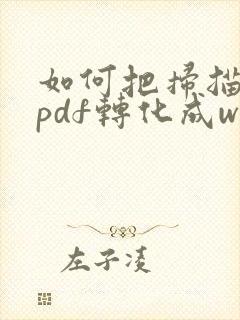 如何把掃描
pdf轉化成w
左子凌